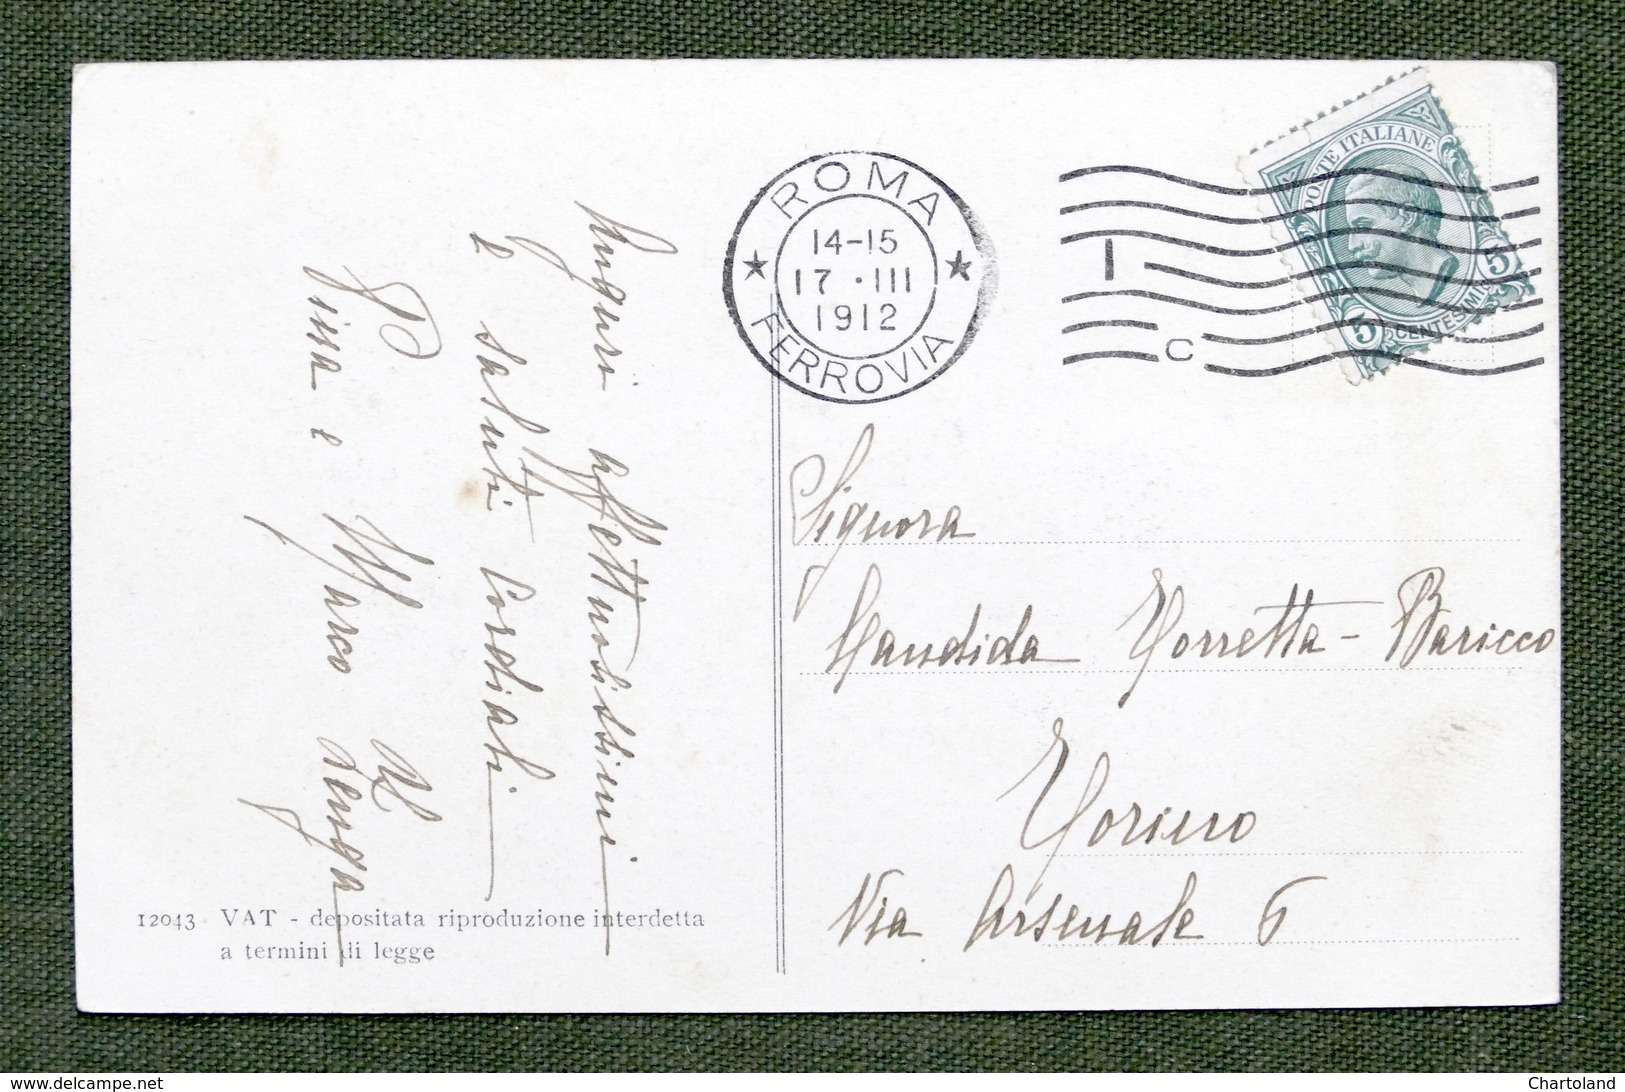 Auguri affettuosissimi
e saluti cordiali
Pissa e Marco
ROMA
14-15
17 · III
1912
FERROVIA
I
C
POSTE ITALIANE
5 CENTESIMI 5
Signora
Candida Torretta - Baricco
Torino
Via Arsenale 6
12043 VAT - depositata riproduzione interdetta
a termini di legge
delcampe.net
Chartoland